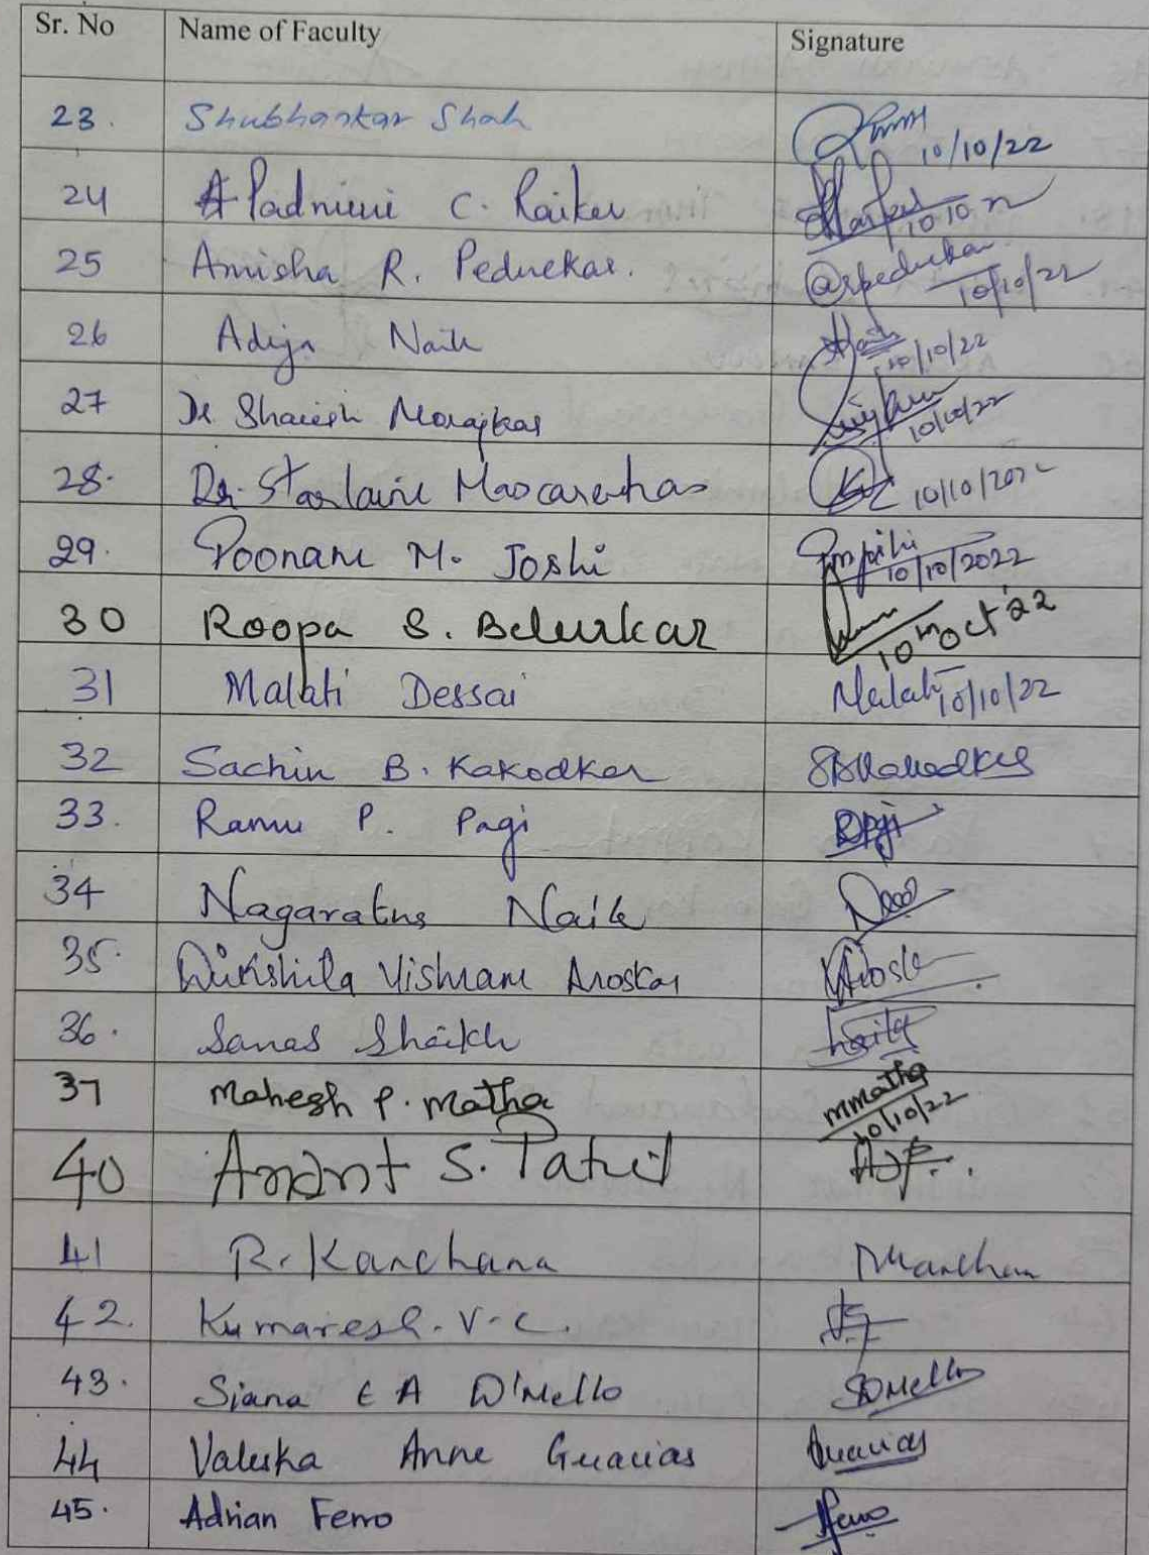 Sr. No Name of Faculty Signature
23. Shubhankar Shah 10/10/22
24 Padmini C. Raikar 10 10
25 Amisha R. Pednekar. 10/10/22
26 Naik 10/10/22
27 Dr Shailesh Morajkar 10/10/22
28. Dr. Mascarenhas 10/10/202
29. Poonam M. Joshi 10/10/2022
30 Roopa S. Belurkar 10th Oct '22
31 Malati Dessai Malati 10/10/22
32 Sachin B. Kakodkar SBKakodkar
33. Ramu P. Pagi
34 Nagaratna Naik
35. Vishram Aroskar
36. Sanas Shaikh
37 Mahesh P. Matha mmatha 10/10/22
40 Anant S. Patil
41 R. Kanchana
42. Kumaresh. V. C.
43. Siana E A D'Mello SDMello
44 Valeska Anne
45. Adrian Ferro